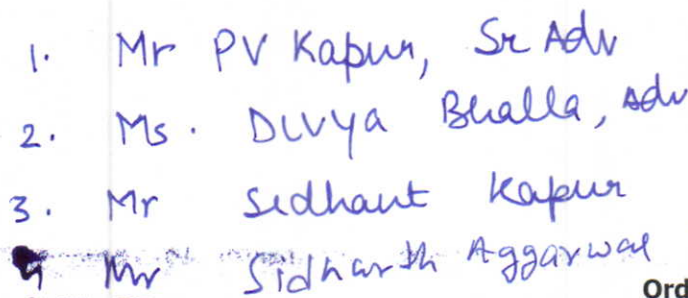 1. Mr PV Kapur, Sr Adv
2. Ms. Divya Bhalla, Adv
3. Mr Sidhant Kapur
4 Mr Sidharth Aggarwal
Ord